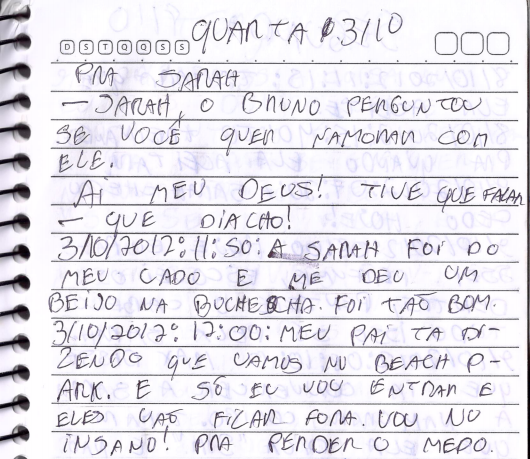 D S T Q Q S S QUARTA 3/10
PRA SARAH
— SARAH, O BRUNO PERGUNTOU
SE VOCÊ QUER NAMORAR COM
ELE.
AI MEU DEUS! TIVE QUE FALAR
— QUE DIACHO!
3/10/2012: 11:50: A SARAH FOI DO
MEU LADO E ME DEU UM
BEIJO NA BOCHECHA. FOI TÃO BOM.
3/10/2012: 12:00: MEU PAI TA DI-
ZENDO QUE VAMOS NO BEACH P-
ARK. E SÓ EU VOU ENTRAR E
ELES VAO FICAR FORA. VOU NO
INSANO! PRA PERDER O MEDO.